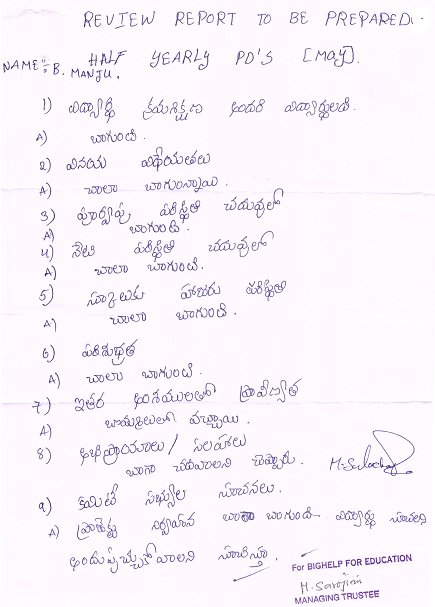 REVIEW REPORT TO BE PREPARED.
HALF YEARLY PD'S [MAY].
NAME:- B. MANJU.
1) విద్యార్థి క్రమశిక్షణ ఇందరి విద్యార్థులది
A) బాగుంది.
2) వినయ విధేయతలు
A) చాలా బాగున్నాయి.
3) పూర్వపు పరిస్థితి చదువులో
A) బాగుంది.
4) నేటి పరిస్థితి చదువులో
A) చాలా బాగుంది.
5) స్కూలుకు హాజరు పరిస్థితి
A) చాలా బాగుంది.
6) పరిశుభ్రత
A) చాలా బాగుంది.
7) ఇతర అంశములలో ప్రావీణ్యత
A) వచ్చాయి.
8) అభిప్రాయాలు / సలహాలు
బాగా చదవాలని చెప్పారు.
9) కమిటీ సభ్యుల సూచనలు.
A) ప్రాజెక్టు నిర్వహణ బాగుంది
అందుపుచ్చుకోవాలని సూచిస్తూ
For BIGHELP FOR EDUCATION
M. Sarojini
MANAGING TRUSTEE